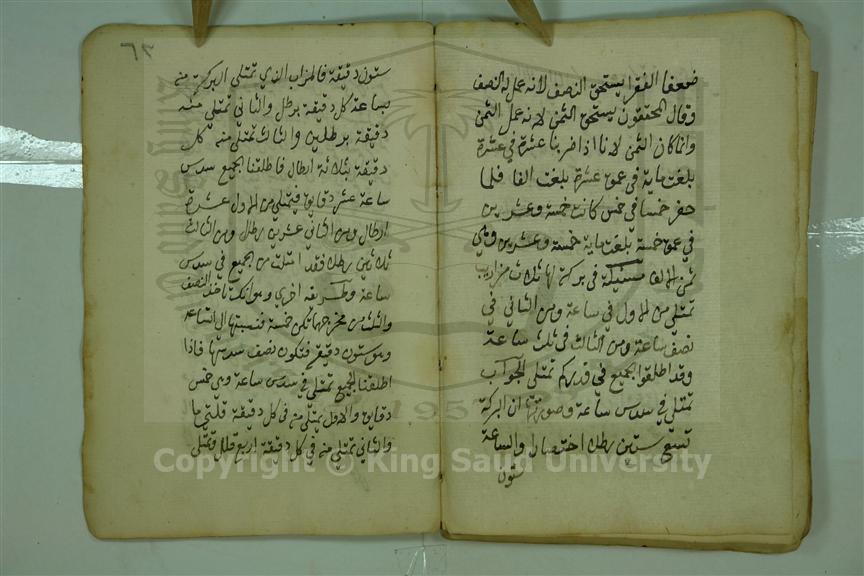 ضعفا الفقرا يستحق النصف لانه عمل له النصف
وقال المحققون يستحق الثمن لانه عمل الثمن
وانما كان الثمن لانا اذا ضربنا عشرة في عشرة
بلغت ماية في عمق عشرة بلغت الفا فلما
حفر خمسا في خمس كانت خمسة وعشرين
في عمق خمسة بلغت ماية خمسة وعشرين وهي
ثمن الالف مسئلة في بركة لها ثلاث مزاريب
تمتلي من الاول في ساعة ومن الثاني في
نصف ساعة ومن الثالث في ثلث ساعة
وقد اطلقوا الجميع في قدركم تمتلي الجواب
تمتلي في سدس ساعة وصورتها ان البركة
تسع ستين رطلا اختصارا والساعة
ستون
٦٢
ستون دقيقة فالمزاب الذي تمتلي البركة منه
بساعة كل دقيقة برطل والثاني تمتلي منه
دقيقة برطلين والثالث تمتلي منه كل
دقيقة بثلاثة ارطال فاطلقنا الجميع سدس
ساعة عشر دقايق فيمتلي من الاول عشرة
ارطال ومن الثاني عشرين رطل ومن الثالث
ثلاثين رطلا فقد امتلت من الجميع في سدس
ساعة وطريقه اخري وهو انك تاخذ النصف
والثلث من مخرجها تكن خمسة فنسبتها الى الساعة
وهو ستون دقيقة فتكون نصف سدسها فاذا
اطلقنا الجميع تمتلي في سدس ساعة وهي خمس
دقايق والاول يمتلي منه في كل دقيقة قلتي ما
والثاني تمتلي منه في كل دقيقة اربع قلل وتمتلي
Copyright © King Saud University
1957